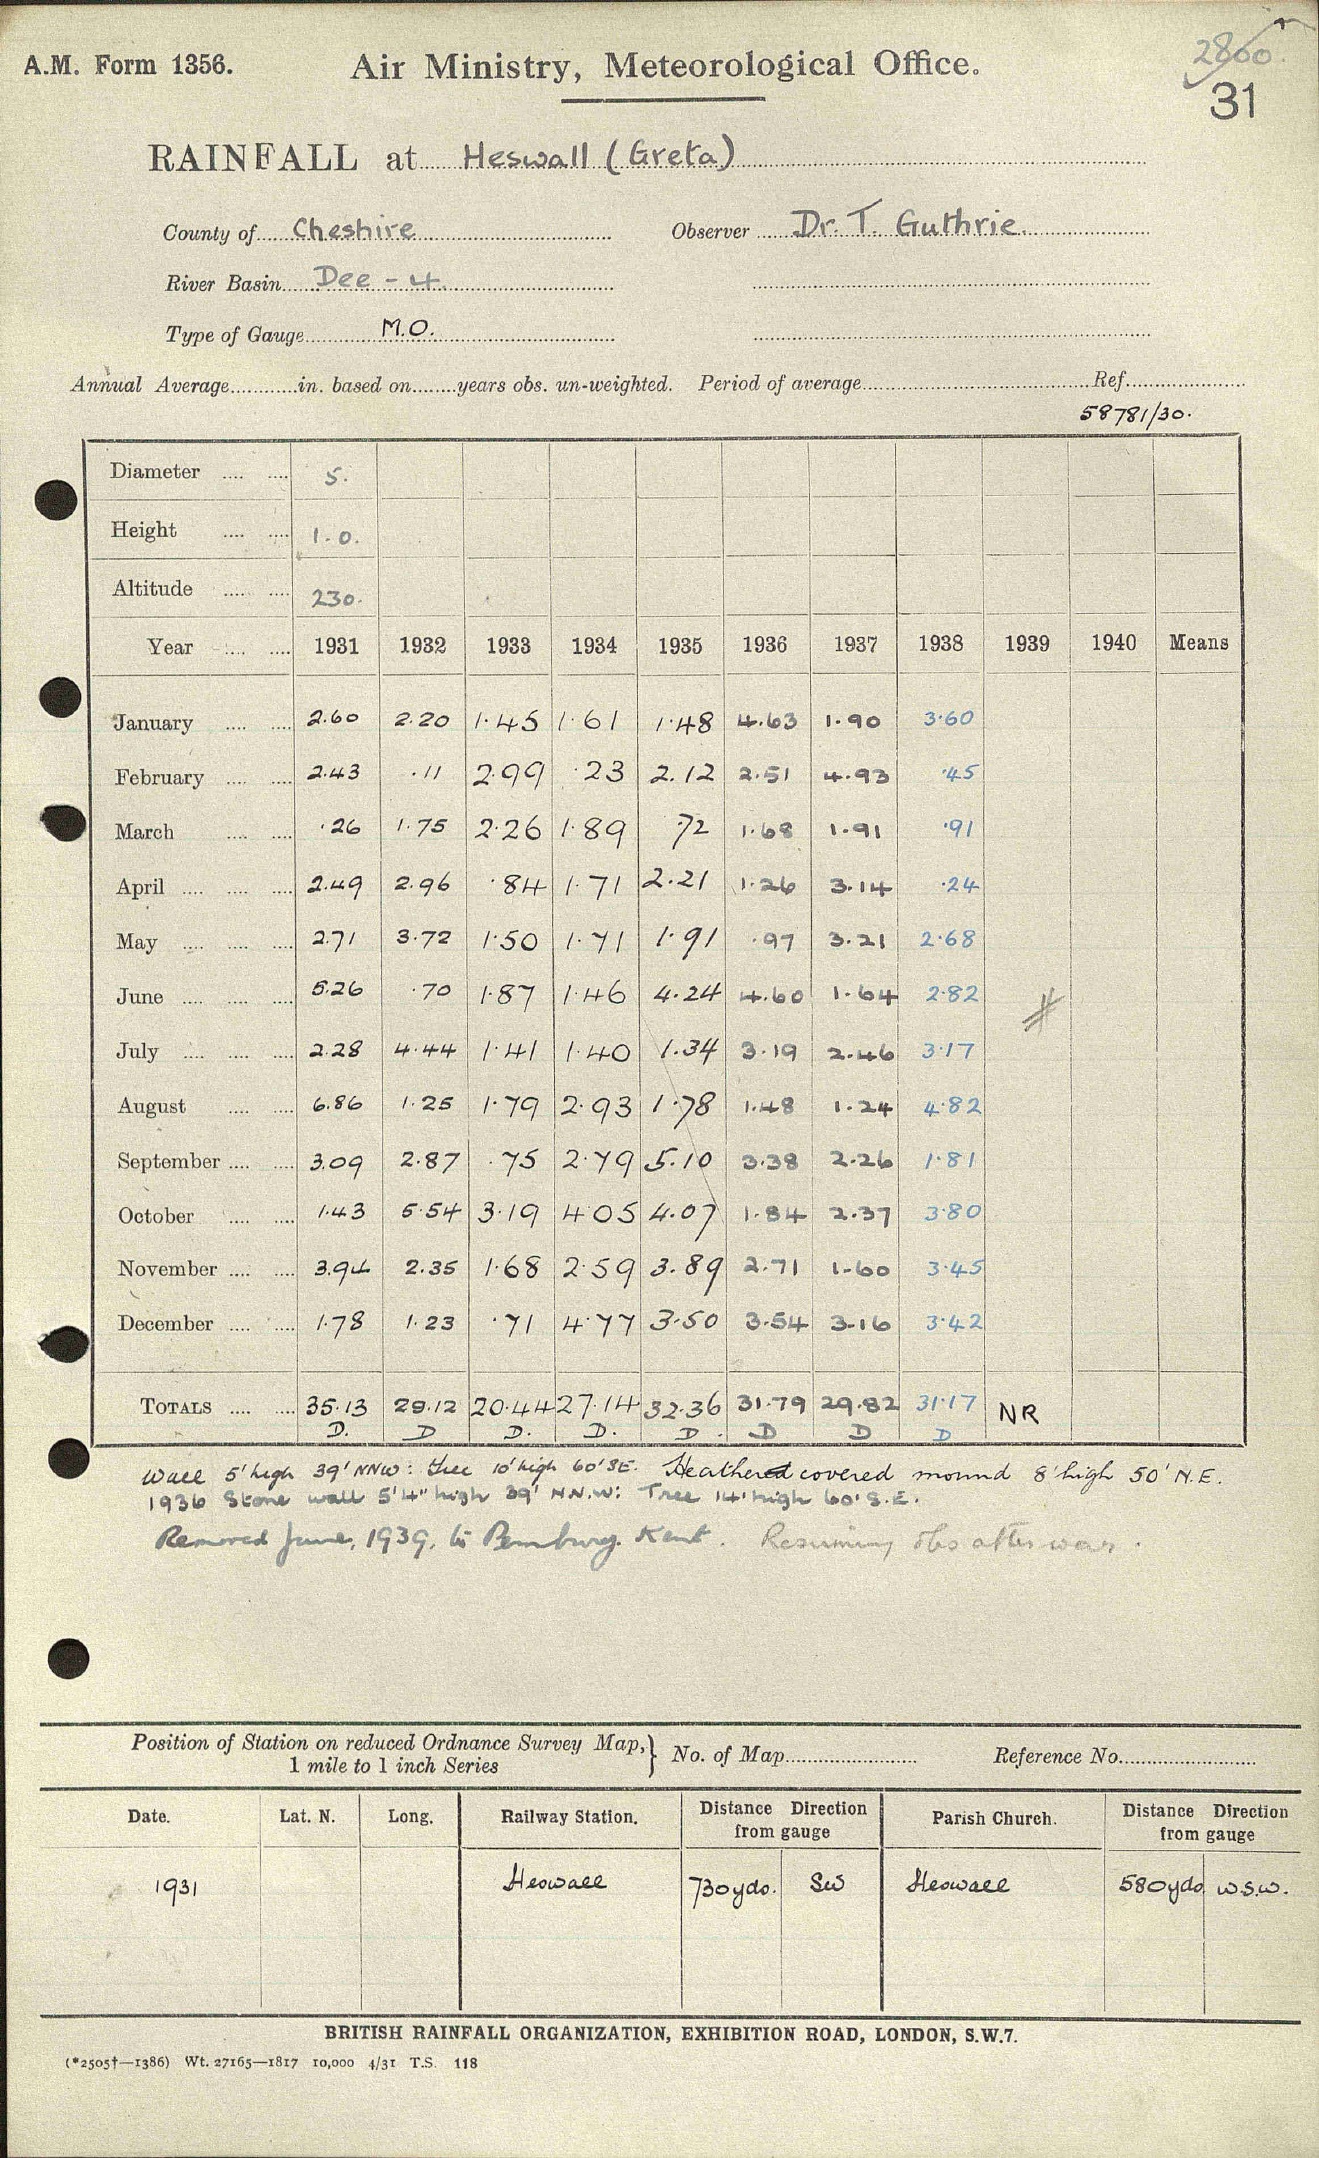 A.M. Form 1356.
Air Ministry, Meteorological Office.
2800.
31
RAINFALL at Heswall (Greta)
County of Cheshire Observer Dr. T. Guthrie
River Basin Dee - 4
Type of Gauge M.O.
Annual Average in. based on years obs. un-weighted. Period of average Ref.
58781/30.
Diameter 5.
Height 1.0.
Altitude 230.
Year 1931 1932 1933 1934 1935 1936 1937 1938 1939 1940 Means
January 2.60 2.20 1.45 1.61 1.48 4.63 1.90 3.60
February 2.43 .11 2.99 .23 2.12 2.51 4.93 .45
March .26 1.75 2.26 1.89 .72 1.68 1.91 .91
April 2.49 2.96 .84 1.71 2.21 1.26 3.14 .24
May 2.71 3.72 1.50 1.71 1.91 .97 3.21 2.68
June 5.26 .70 1.87 1.46 4.24 4.60 1.64 2.82
July 2.28 4.44 1.41 1.40 1.34 3.19 2.46 3.17
August 6.86 1.25 1.79 2.93 1.78 1.48 1.24 4.82
September 3.09 2.87 .75 2.79 5.10 3.38 2.26 1.81
October 1.43 5.54 3.19 4.05 4.07 1.84 2.37 3.80
November 3.94 2.35 1.68 2.59 3.89 2.71 1.60 3.45
December 1.78 1.23 .71 4.77 3.50 3.54 3.16 3.42
TOTALS 35.13 29.12 20.44 27.14 32.36 31.79 29.82 31.17 NR
D. D D. D. D. D D D
Wall 5' high 39' NNW: tree 10' high 60' SE. Heather covered mound 8' high 50' N.E.
1936 Stone wall 5'4" high 39' N.N.W: Tree 14' high 60' S.E.
Removed June, 1939, to Pembury. Kent. Resuming obs after war.
Position of Station on reduced Ordnance Survey Map, } No. of Map Reference No.
1 mile to 1 inch Series
Date. Lat. N. Long. Railway Station. Distance Direction from gauge Parish Church. Distance Direction from gauge
1931 Heswall 730 yds. SW Heswall 580 yds W.S.W.
BRITISH RAINFALL ORGANIZATION, EXHIBITION ROAD, LONDON, S.W.7.
(*2505†—1386) Wt. 27165—1817 10,000 4/31 T.S. 118